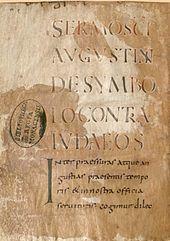 SERMO SCI
AUGUSTINI
DE SYMBO
LO CONTRA
IUDAEOS
Inter praessuras atque an
gustias praesentis tempo
ris et nostra officia
servitutis cogimur dilec